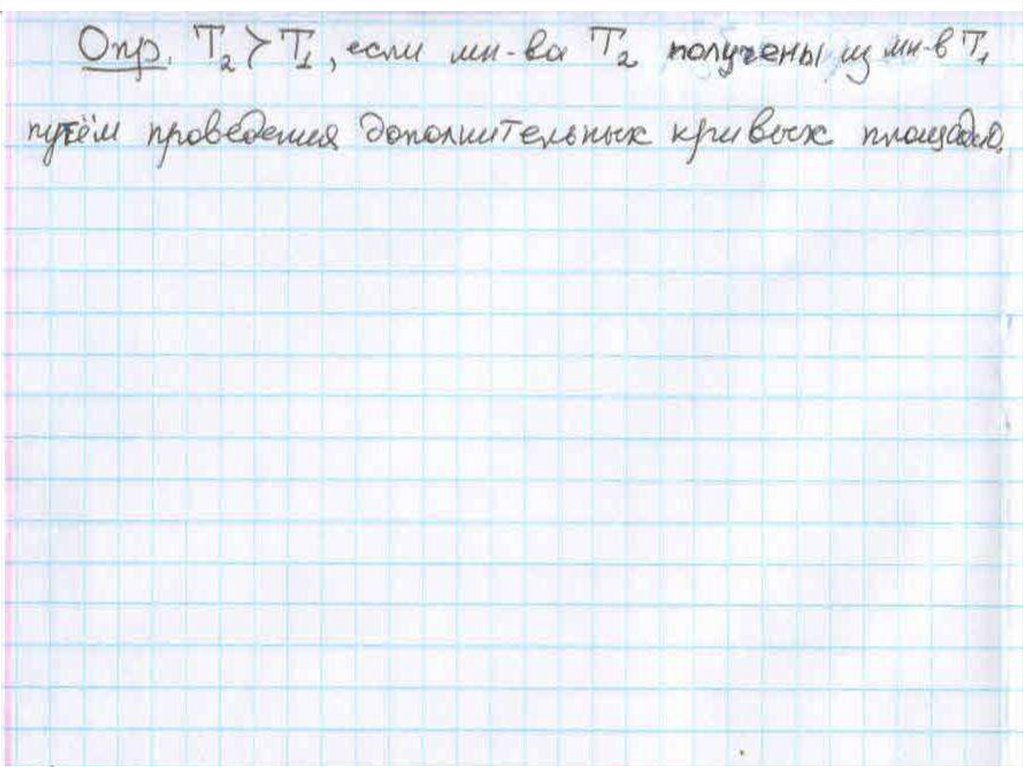 Опр. T₂ ≻ T₁, если мн-ва T₂ получены из мн-в T₁
путём проведения дополнительных кривых площади 0.